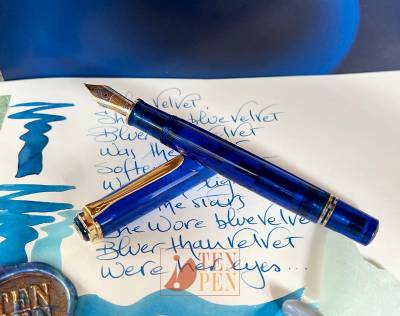 Velvet.
She blue velvet
Bluer velvet
Was the
Softe
the stars
She wore blue velvet
Bluer than velvet
Were her eyes...
TEN
PEN
TEN
PEN